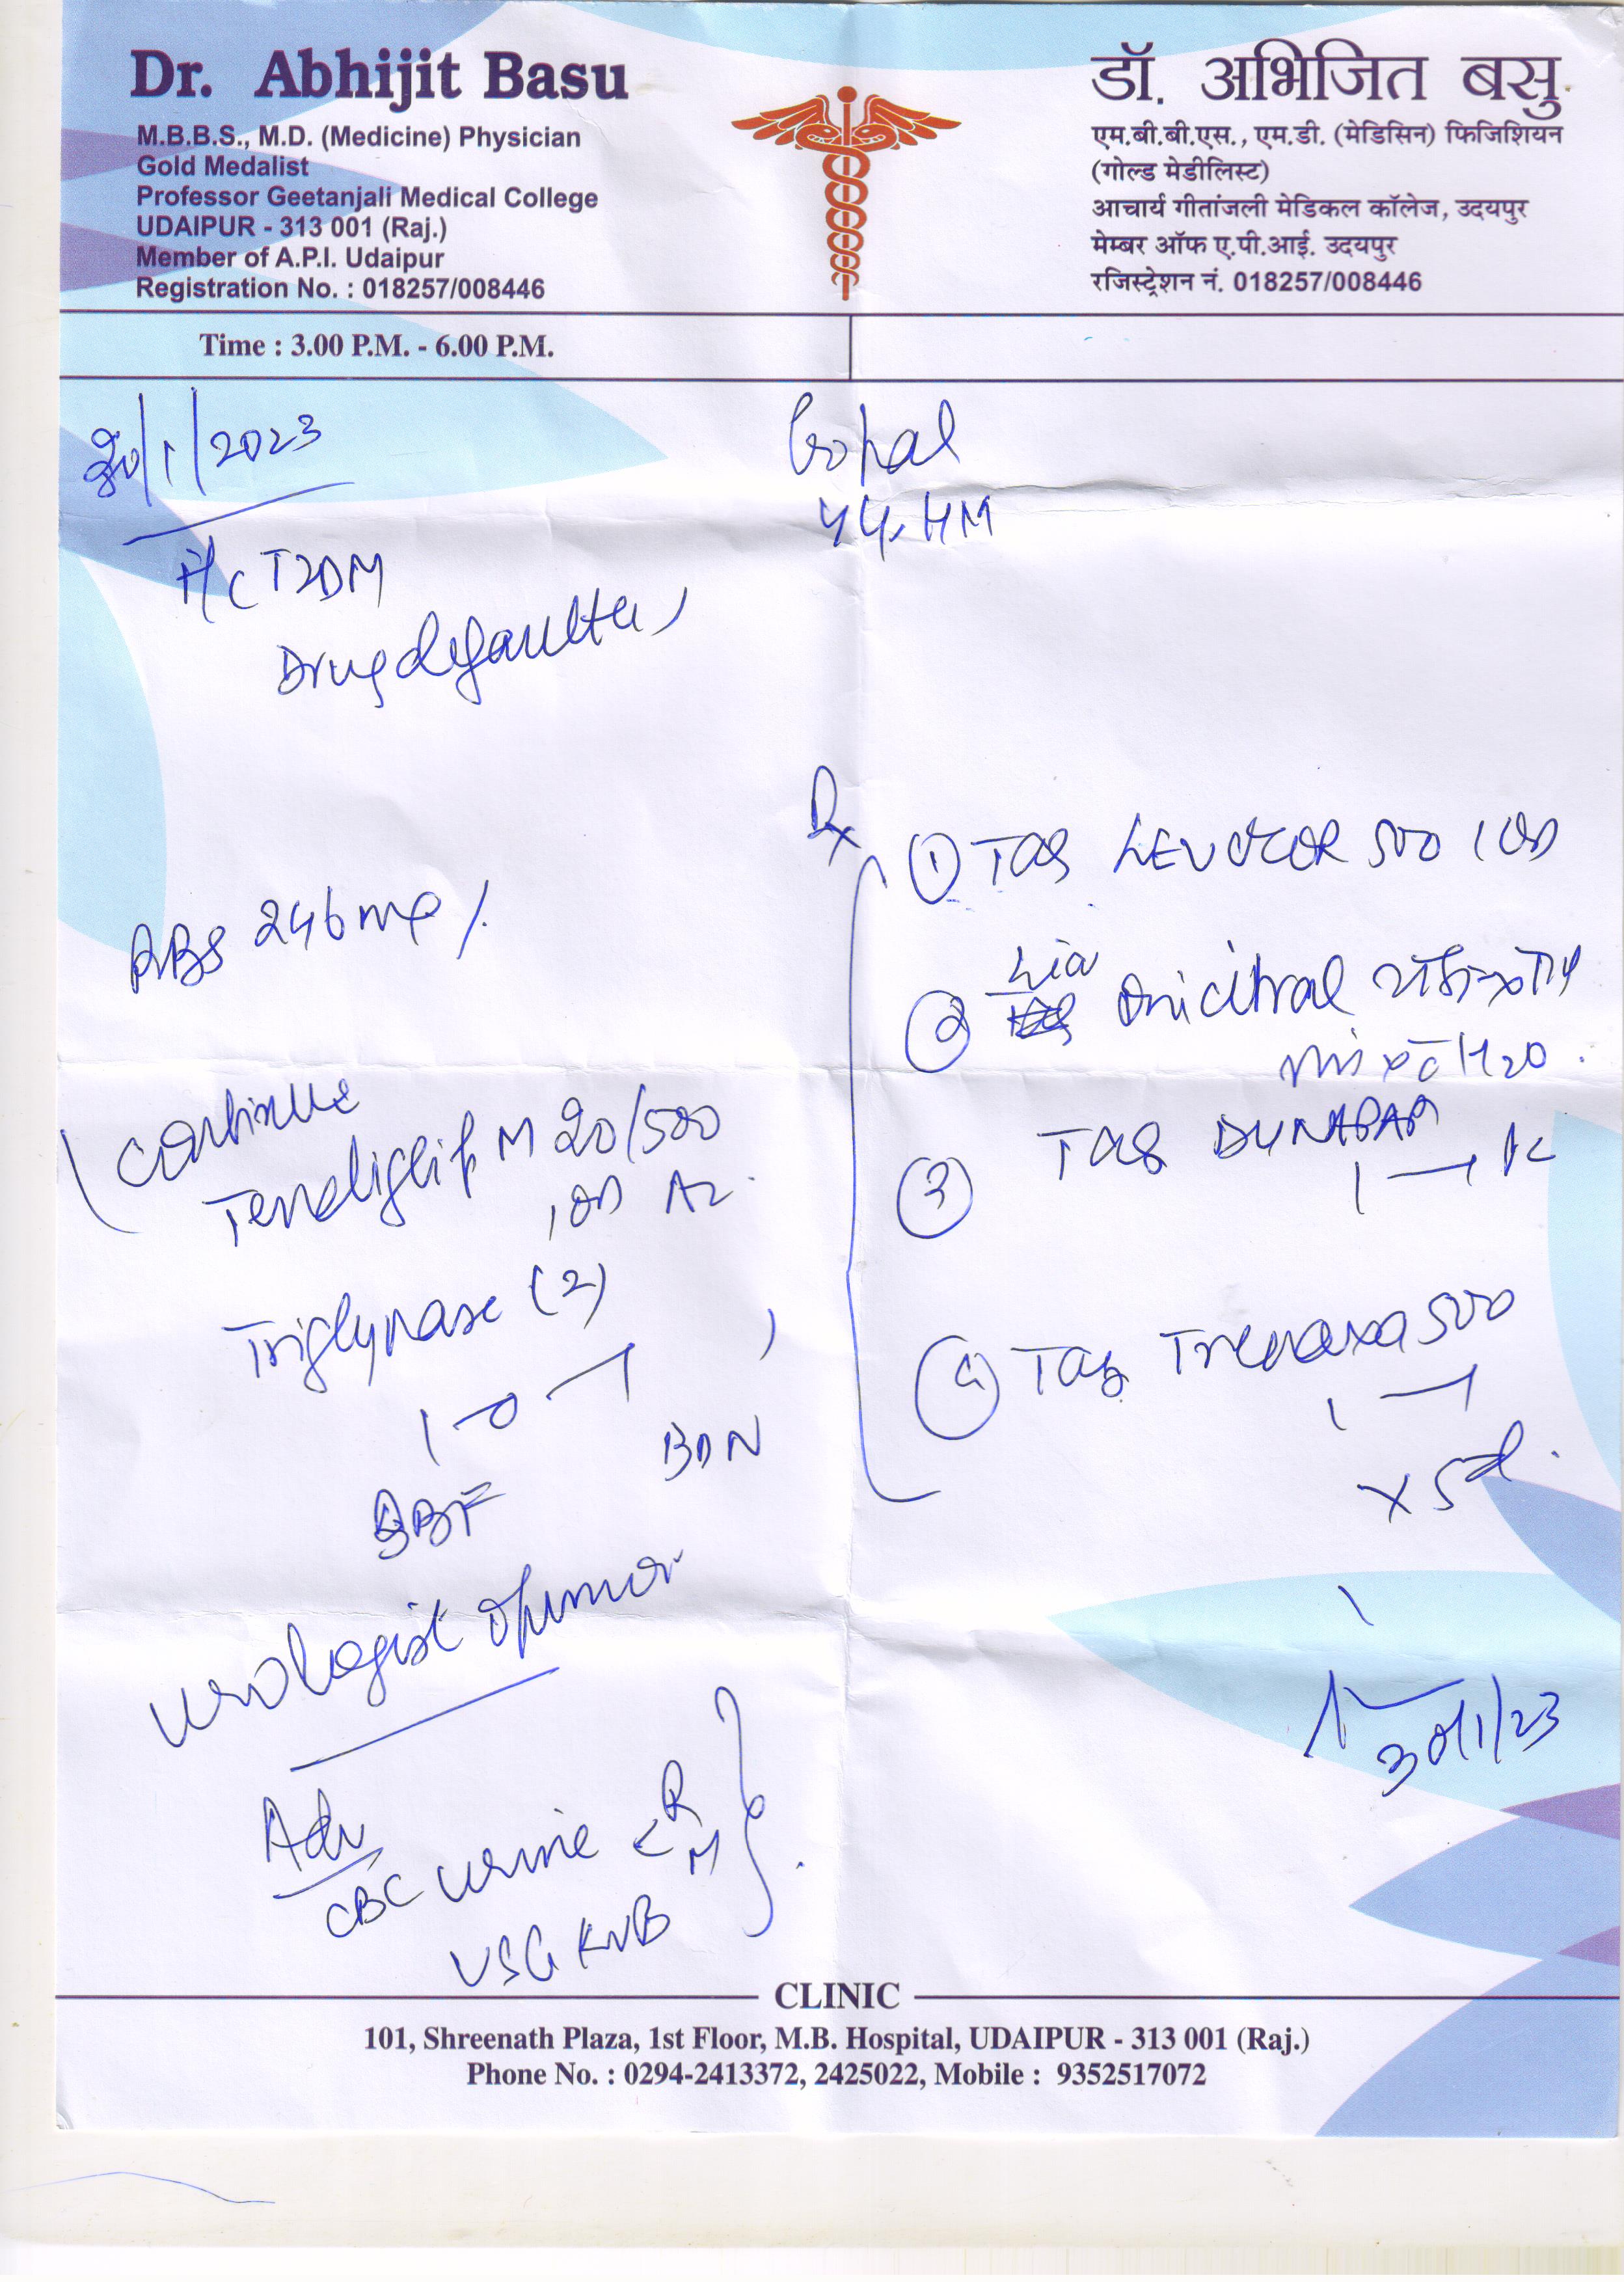 Dr. Abhijit Basu
M.B.B.S., M.D. (Medicine) Physician
Gold Medalist
Professor Geetanjali Medical College
UDAIPUR - 313 001 (Raj.)
Member of A.P.I. Udaipur
Registration No. : 018257/008446
डॉ. अभिजित बसु
एम.बी.बी.एस., एम.डी. (मेडिसिन) फिजिशियन
(गोल्ड मेडीलिस्ट)
आचार्य गीतांजली मेडिकल कॉलेज, उदयपुर
मेम्बर ऑफ ए.पी.आई. उदयपुर
रजिस्ट्रेशन नं. 018257/008446
Time : 3.00 P.M. - 6.00 P.M.
30/1/2023
Gopal
T2DM
Drug defaulter
RBS 246 mg%
continue
Teneliglip M 20/500
1 OD
Triglynase (2)
1-0-1
BBF
urologist opinion
Adv
CBC urine < R
M
USG KUB
Rx
① TAB 500 1 OD
②
mix c H2O
③ TAB DYNAPAR
1-1
④ TAB Trenaxa 500
1-1
x 5d.
30/1/23
CLINIC
101, Shreenath Plaza, 1st Floor, M.B. Hospital, UDAIPUR - 313 001 (Raj.)
Phone No. : 0294-2413372, 2425022, Mobile : 9352517072